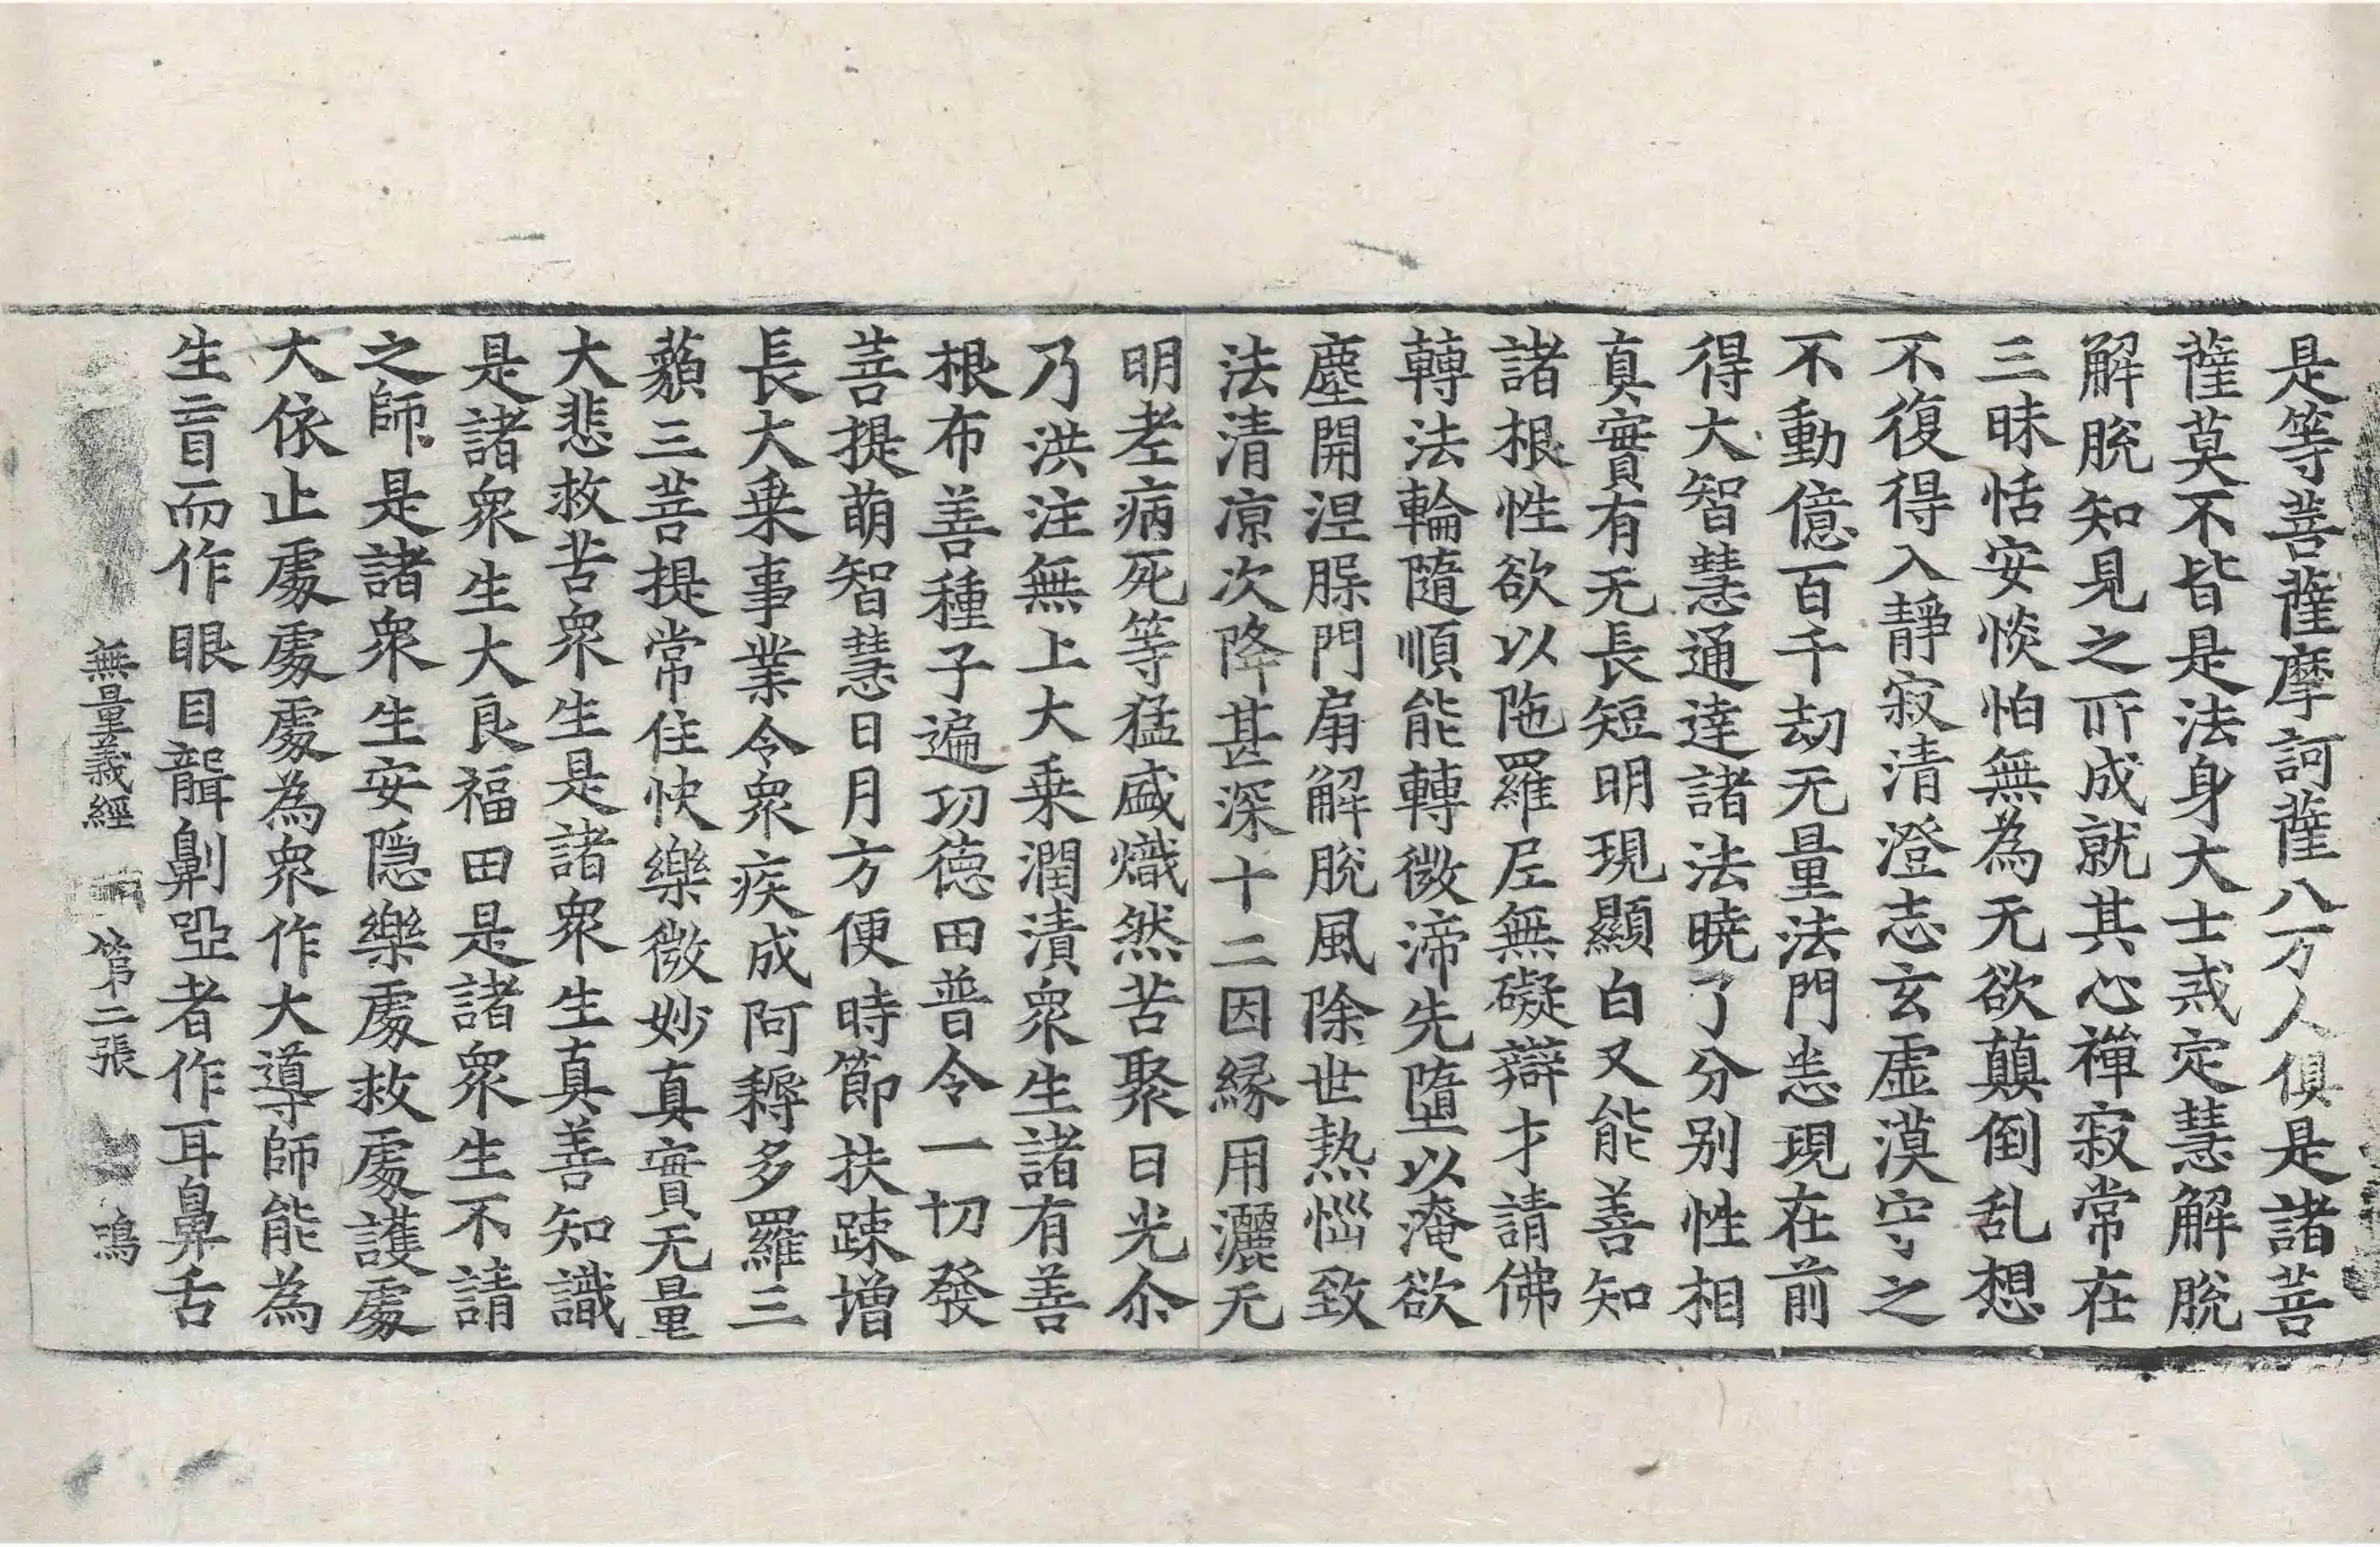 是等菩薩摩訶薩八万人俱是諸菩
薩莫不皆是法身大士戒定慧解脫
解脫知見之所成就其心禪寂常在
三昧恬安惔怕無為无欲顛倒乱想
不復得入靜寂清澄志玄虛漠守之
不動億百千劫无量法門悉現在前
得大智慧通達諸法曉了分别性相
真實有无長短明現顯白又能善知
諸根性欲以陁羅尼無礙辯才請佛
轉法輪隨順能轉微渧先墮以淹欲
塵開涅槃門扇解脫風除世熱惱致
法清凉次降甚深十二因縁用灑无
明老病死等猛盛熾然苦聚日光尒
乃洪注無上大乗潤漬衆生諸有善
根布善種子遍㓛徳田普令一切發
菩提萌智慧日月方便時節扶踈增
長大乗事業令衆疾成阿耨多羅三
藐三菩提常住快樂微妙真實无量
大悲救苦衆生是諸衆生真善知識
是諸衆生大良福田是諸衆生不請
之師是諸衆生安隱樂處救處護處
大依止處處處為衆作大導師能為
生盲而作眼目聾劓瘂者作耳鼻舌
無量義經 第二張 鳴